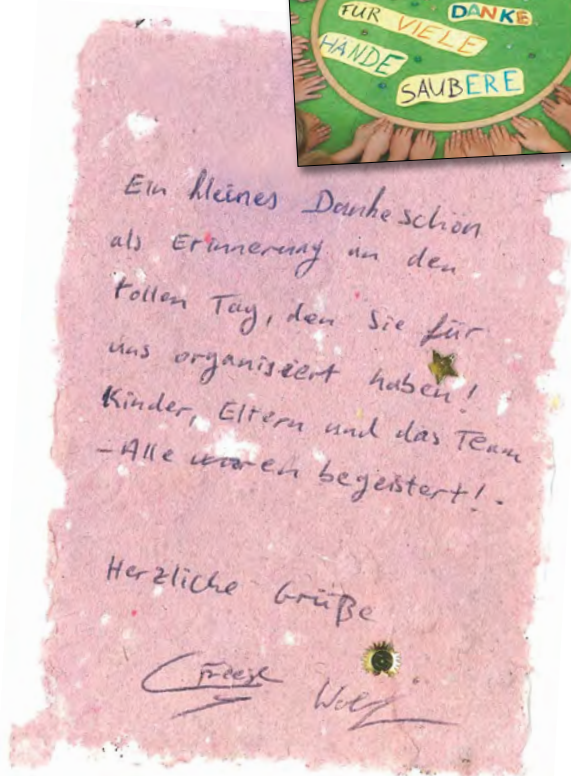 DANKE
FÜR VIELE
HÄNDE
SAUBERE
Ein kleines Dankeschön
als Erinnerung an den
tollen Tag, den Sie für
uns organisiert haben!
Kinder, Eltern und das Team
- Alle waren begeistert! -
Herzliche Grüße
Wolf